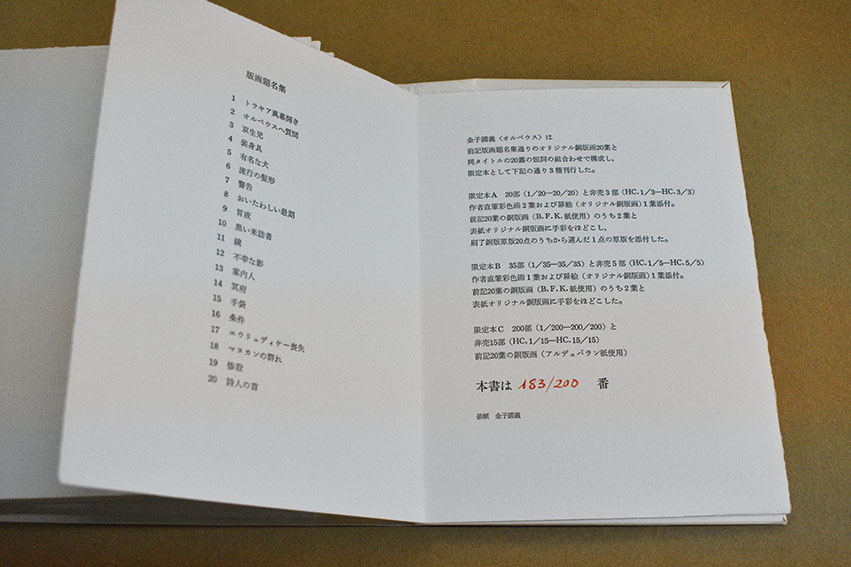 版画題名集
1 トラキア風幕開き
2 オルペウスへ質問
3 双生児
4 装身具
5 有名な犬
6 流行の髪形
7 警告
8 おいたわしい最期
9 胃液
10 黒い来訪者
11 鏡
12 不幸な影
13 案内人
14 冥府
15 手袋
16 条件
17 エウリュディケー喪失
18 マヌカンの群れ
19 惨殺
20 詩人の首
金子國義〈オルペウス〉は
前記版画題名集通りのオリジナル銅版画20葉と
同タイトルの20篇の短詞の組合わせで構成し、
限定本として下記の通り3種刊行した。
限定本A 20部(1/20—20/20)と非売3部(HC.1/3—HC.3/3)
作者直筆彩色画2葉および扉絵(オリジナル銅版画)1葉添付。
前記20葉の銅版画(B.F.K.紙使用)のうち2葉と
表紙オリジナル銅版画に手彩をほどこし、
刷了銅版原版20点のうちから選んだ1点の原版を添付した。
限定本B 35部(1/35—35/35)と非売5部(HC.1/5—HC.5/5)
作者直筆彩色画1葉および扉絵(オリジナル銅版画)1葉添付。
前記20葉の銅版画(B.F.K.紙使用)のうち2葉と
表紙オリジナル銅版画に手彩をほどこした。
限定本C 200部(1/200—200/200)と
非売15部(HC.1/15—HC.15/15)
前記20葉の銅版画(アルデュバラン紙使用)
本書は 183/200 番
装幀 金子國義